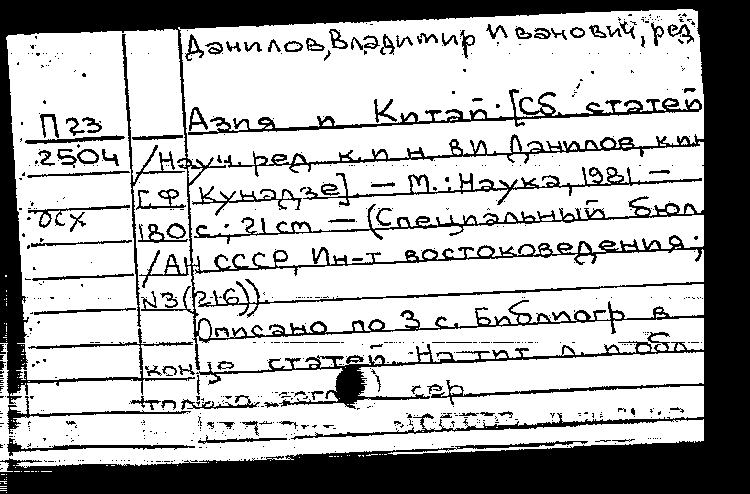 Данилов, Владимир Иванович, ред
Азия и Китай: [Сб. статей
П23
2504
/Науч. ред. к.и.н. В.И. Данилов, к.и.н
Г.Ф. Кунадзе]. — М.: Наука, 1981. —
осх
180 с.; 21 cm. — (Специальный бюл.
/АН СССР, Ин-т востоковедения;
N3(216)).
Описано по 3 с. Библиогр в
конце статей. На тит л. и обл.
только загл сер.